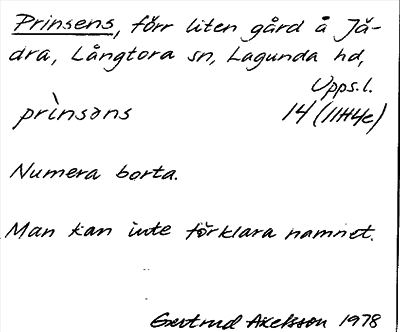 Prinsens, förr liten gård å Jä-
dra, Långtora sn, Lagunda hd,
Upps.l.
prìnsəns 14 (11H4e)
Numera borta.
Man kan inte förklara namnet.
Gertrud Axelsson 1978